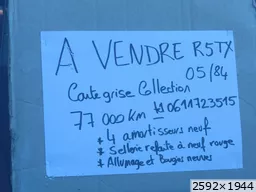 A VENDRE R5TX
05/84
Carte grise Collection
77 000 Km 0611723515
* 4 amortisseurs neuf
* Sellerie refaite à neuf rouge
* Allumage et Bougies neuves
2592×1944